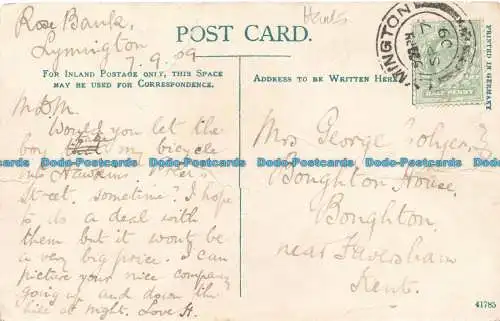 Hants
Rose Bank,
Lymington
7.9.09
POST CARD.
FOR INLAND POSTAGE ONLY, THIS SPACE
MAY BE USED FOR CORRESPONDENCE.
ADDRESS TO BE WRITTEN HERE
PRINTED IN GERMANY
HALF PENNY
M.D.M.
Would you let the
boy take my bicycle
Hawkins
Street. sometime? I hope
to do a deal with
them but it wont be
a very big price. I can
picture your nice company
going up and down the
hill at night. Love H.
Mrs George
Boughton House,
Boughton.
near Faversham
Kent.
41785
Book-Postcards Book-Postcards Book-Postcards